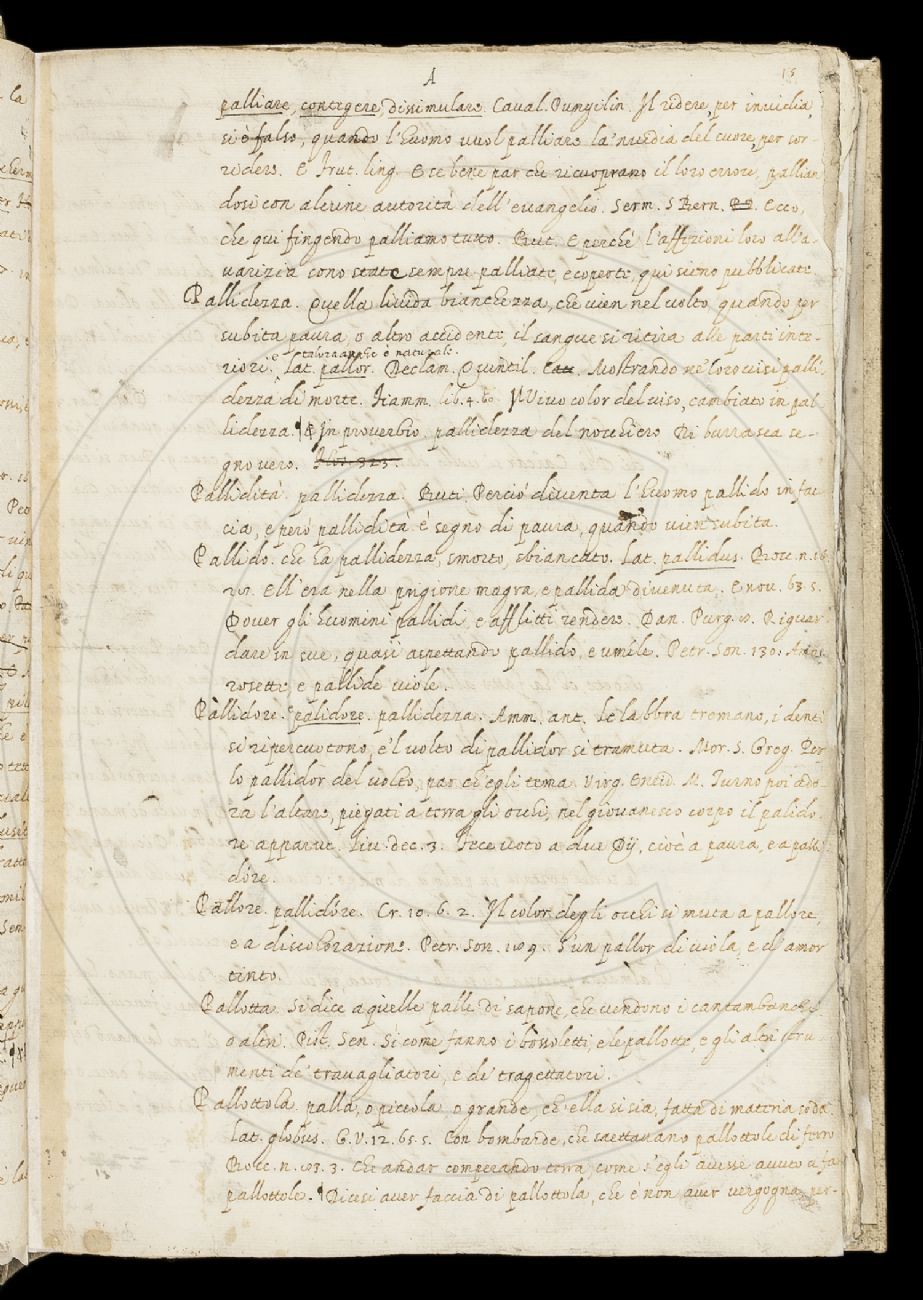 A
13
palliare, contegere, dissimulare. Caval. Pungilin. Il ridere, per inuidia,
si è falso, quando l'huomo vuol palliare la nuidia del cuore, per sor-
ridere. E frut. ling. E se bene par che ricuoprano il loro errore, pallian
dosi con alcune autorità dell'euangelio. Serm. S Bern. Ecco,
che qui fingendo palliamo tutto. But. E perchè l'affezioni loro all'a-
uarizia sono state sempre palliate, e coperte, qui sieno pubblicate
Pallidezza. Quella liuida bianchezza, che vien nel volto, quando per
subita paura, o altro accidente, il sangue si ritira alle parti inte-
e talora anche è naturale.
riori. Lat. pallor. Declam. Quintil. Mostrando ne' loro uisi palli-
dezza di morte. Fiamm. lib. 4. 60. Il Viuo color del uiso, cambiato in pal
lidezza. & In prouerbio. pallidezza del nocchiero Di burrasca se-
gno vero.
Pallidità. pallidezza. Buti. Perciò diuenta l'huomo pallido in fac
cia, e però pallidità è segno di paura, quando vien subita.
Pallido. che ha pallidezza, smorto, sbiancato. Lat. pallidus. Bocc. n. 16
Ell'era nella prigione magra, e pallida diuenuta. E nou. 63. 5.
Douer gli huomini pallidi, e afflitti rendere. Dan. Purg. 8. Riguar-
dare in sue, quasi aspettando pallido, e umile. Petr. Son. 130.
rosette, e pallide viole.
Pàllidore. palidore. pallidezza. Amm. ant. Le labbra tremano, i denti
si ripercuotono, e'l uolto di pallidor si tramuta. Mor. S. Greg. Per
lo pallidor del uolto, par ch'egli tema. Virg. Eneid. M. Turno poi ado-
ra l'altare, piegati a terra gli occhi, nel giouanesco corpo il palido
re apparue. Liu. dec. 3. Fece uoto a due Dij, cioè a paura, e a palli
dóre.
Pallore. pallidóre. Cr. 10. 6. 2. Il color degli occhi si muta a pallore,
e a discolorazione. Petr. Son. 189. S'un pallor di uiola, e d'amor
tinto.
Pallotta. Si dice a quelle palle di sapone, che uendono i cantambanchi
o altri. Pist. Sen. Si come fanno i bossoletti, e le pallotte, e gli altri stru-
menti de' trauagliatori, e de' tragettatori.
Pallottola. palla, o piccola o grande, ch'ella si sia, fatta di materia soda.
Lat. globus. G. V. 12. 65. 5. Con bombarde, che saettauano pallottole di ferro
Bocc. n. 83. 3. Che andar comperando terra, come s'egli auesse auuto a far
pallottole. Dicesi auer faccia di pallottola, che è non auer vergogna, per-